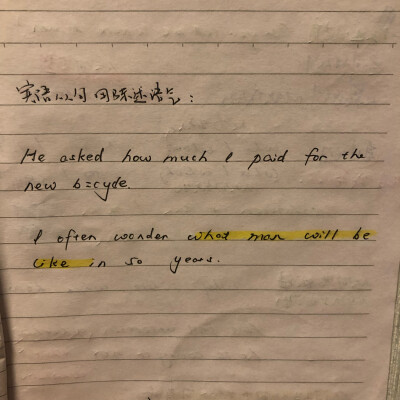 宾语从句用陈述语气:
He asked how much I paid for the
new bicycle.
I often wonder what man will be
like in 50 years.